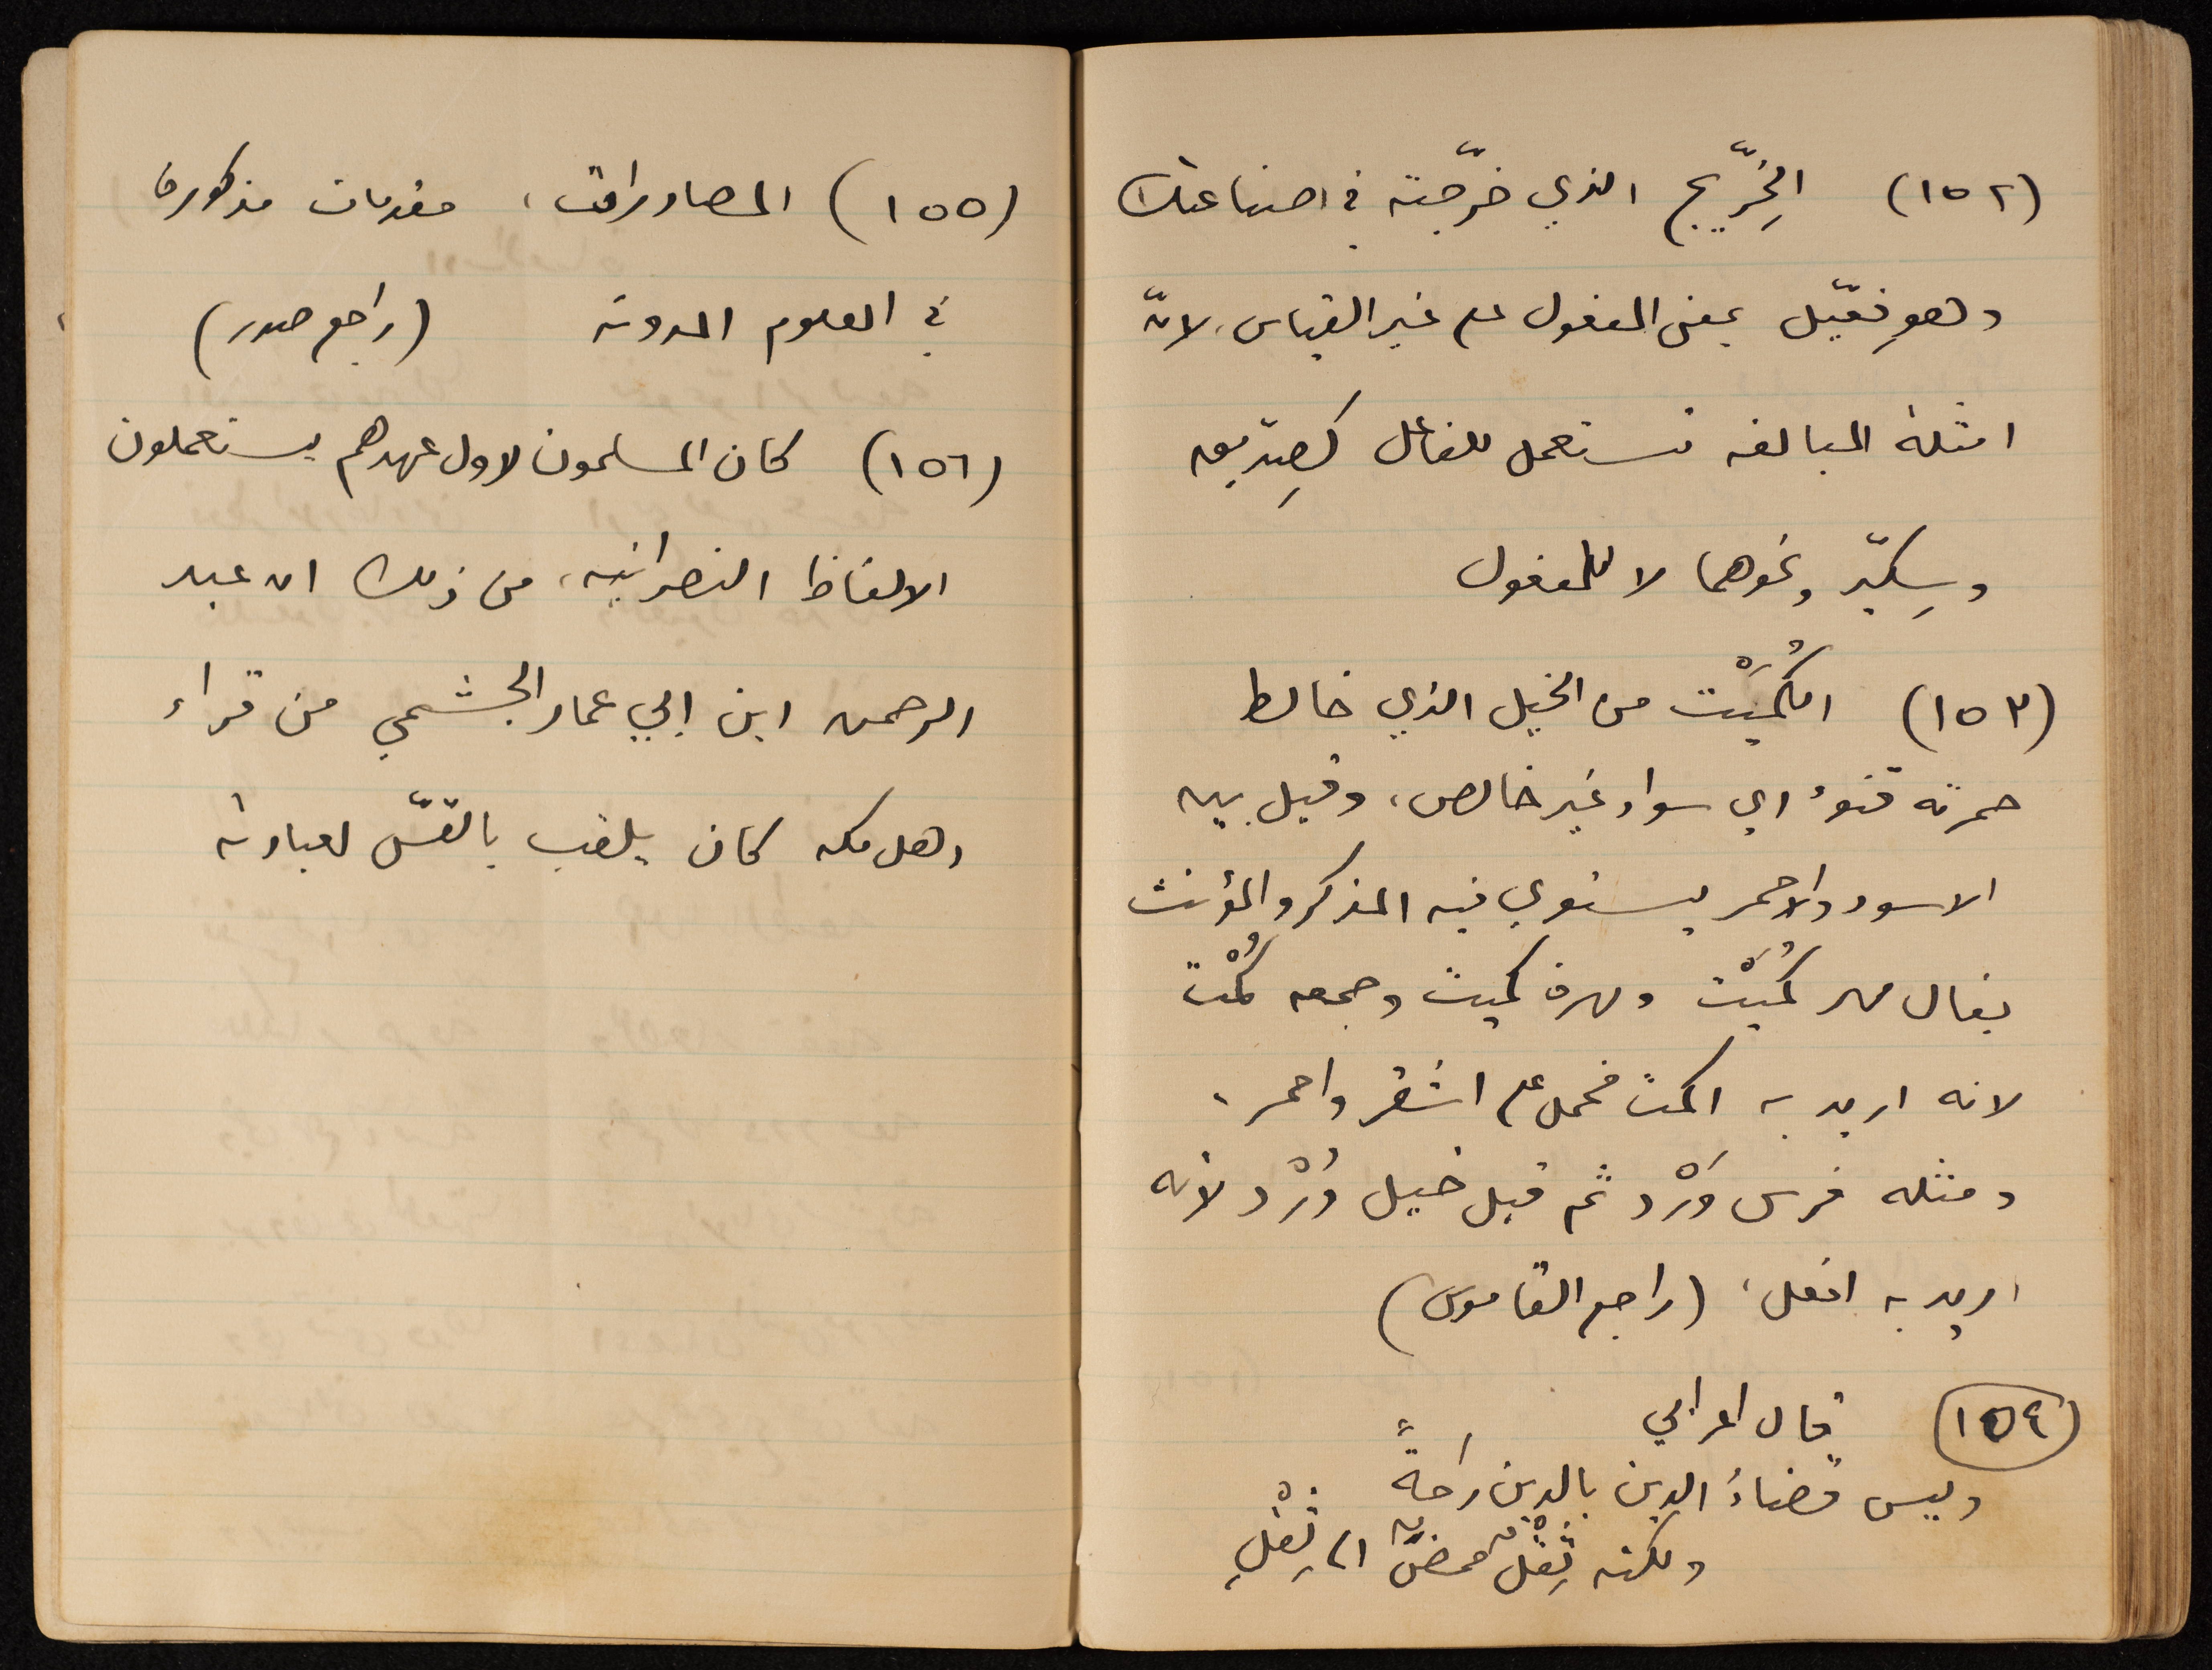 (١٥٢) الخِرِّيج الذي خرّجته في صناعتك
وهو فِعّيل بمعنى المفعول على غير القياس، لانّ
امثلة المبالغه تستعمل للفاعل كصِدّيق
وسِكيّر ونحوهما لا للمفعول
(١٥٣) الكُمَيْت من الخيل الذي خالط
حمرته قنوءٌ اي سواد غير خالص، وقيل بين
الاسود والاحمر يستوي فيه المذكر والمؤنث
يقال مهر كُمَيْت ومهرة كميت وجمعه كُمْت
لانه اريد به اكمت فحمل على اشقر واحمر.
ومثله فرس وَرْد ثم قيل خيل وُرْد لأنه
اريد به افعل، (راجع القاموس)
(١٥٤) قال اعرابي
وليس قضاءُ الدين بالدين راحةً
ولكنه ثِقْلٌ مُمِضٌّ الى ثِقْلِ
(١٥٥) المصادرات، مقدمات مذكورة
في العلوم المدونة (راجع صدر)
(١٥٦) كان المسلمون لاول عهدهم يستعملون
الالفاظ النصرانيه، من ذلك ان عبد
الرحمن ابن ابي عمار الجشمي من قراء
اهل مكه كان يلقب بالقسّ لعبادته